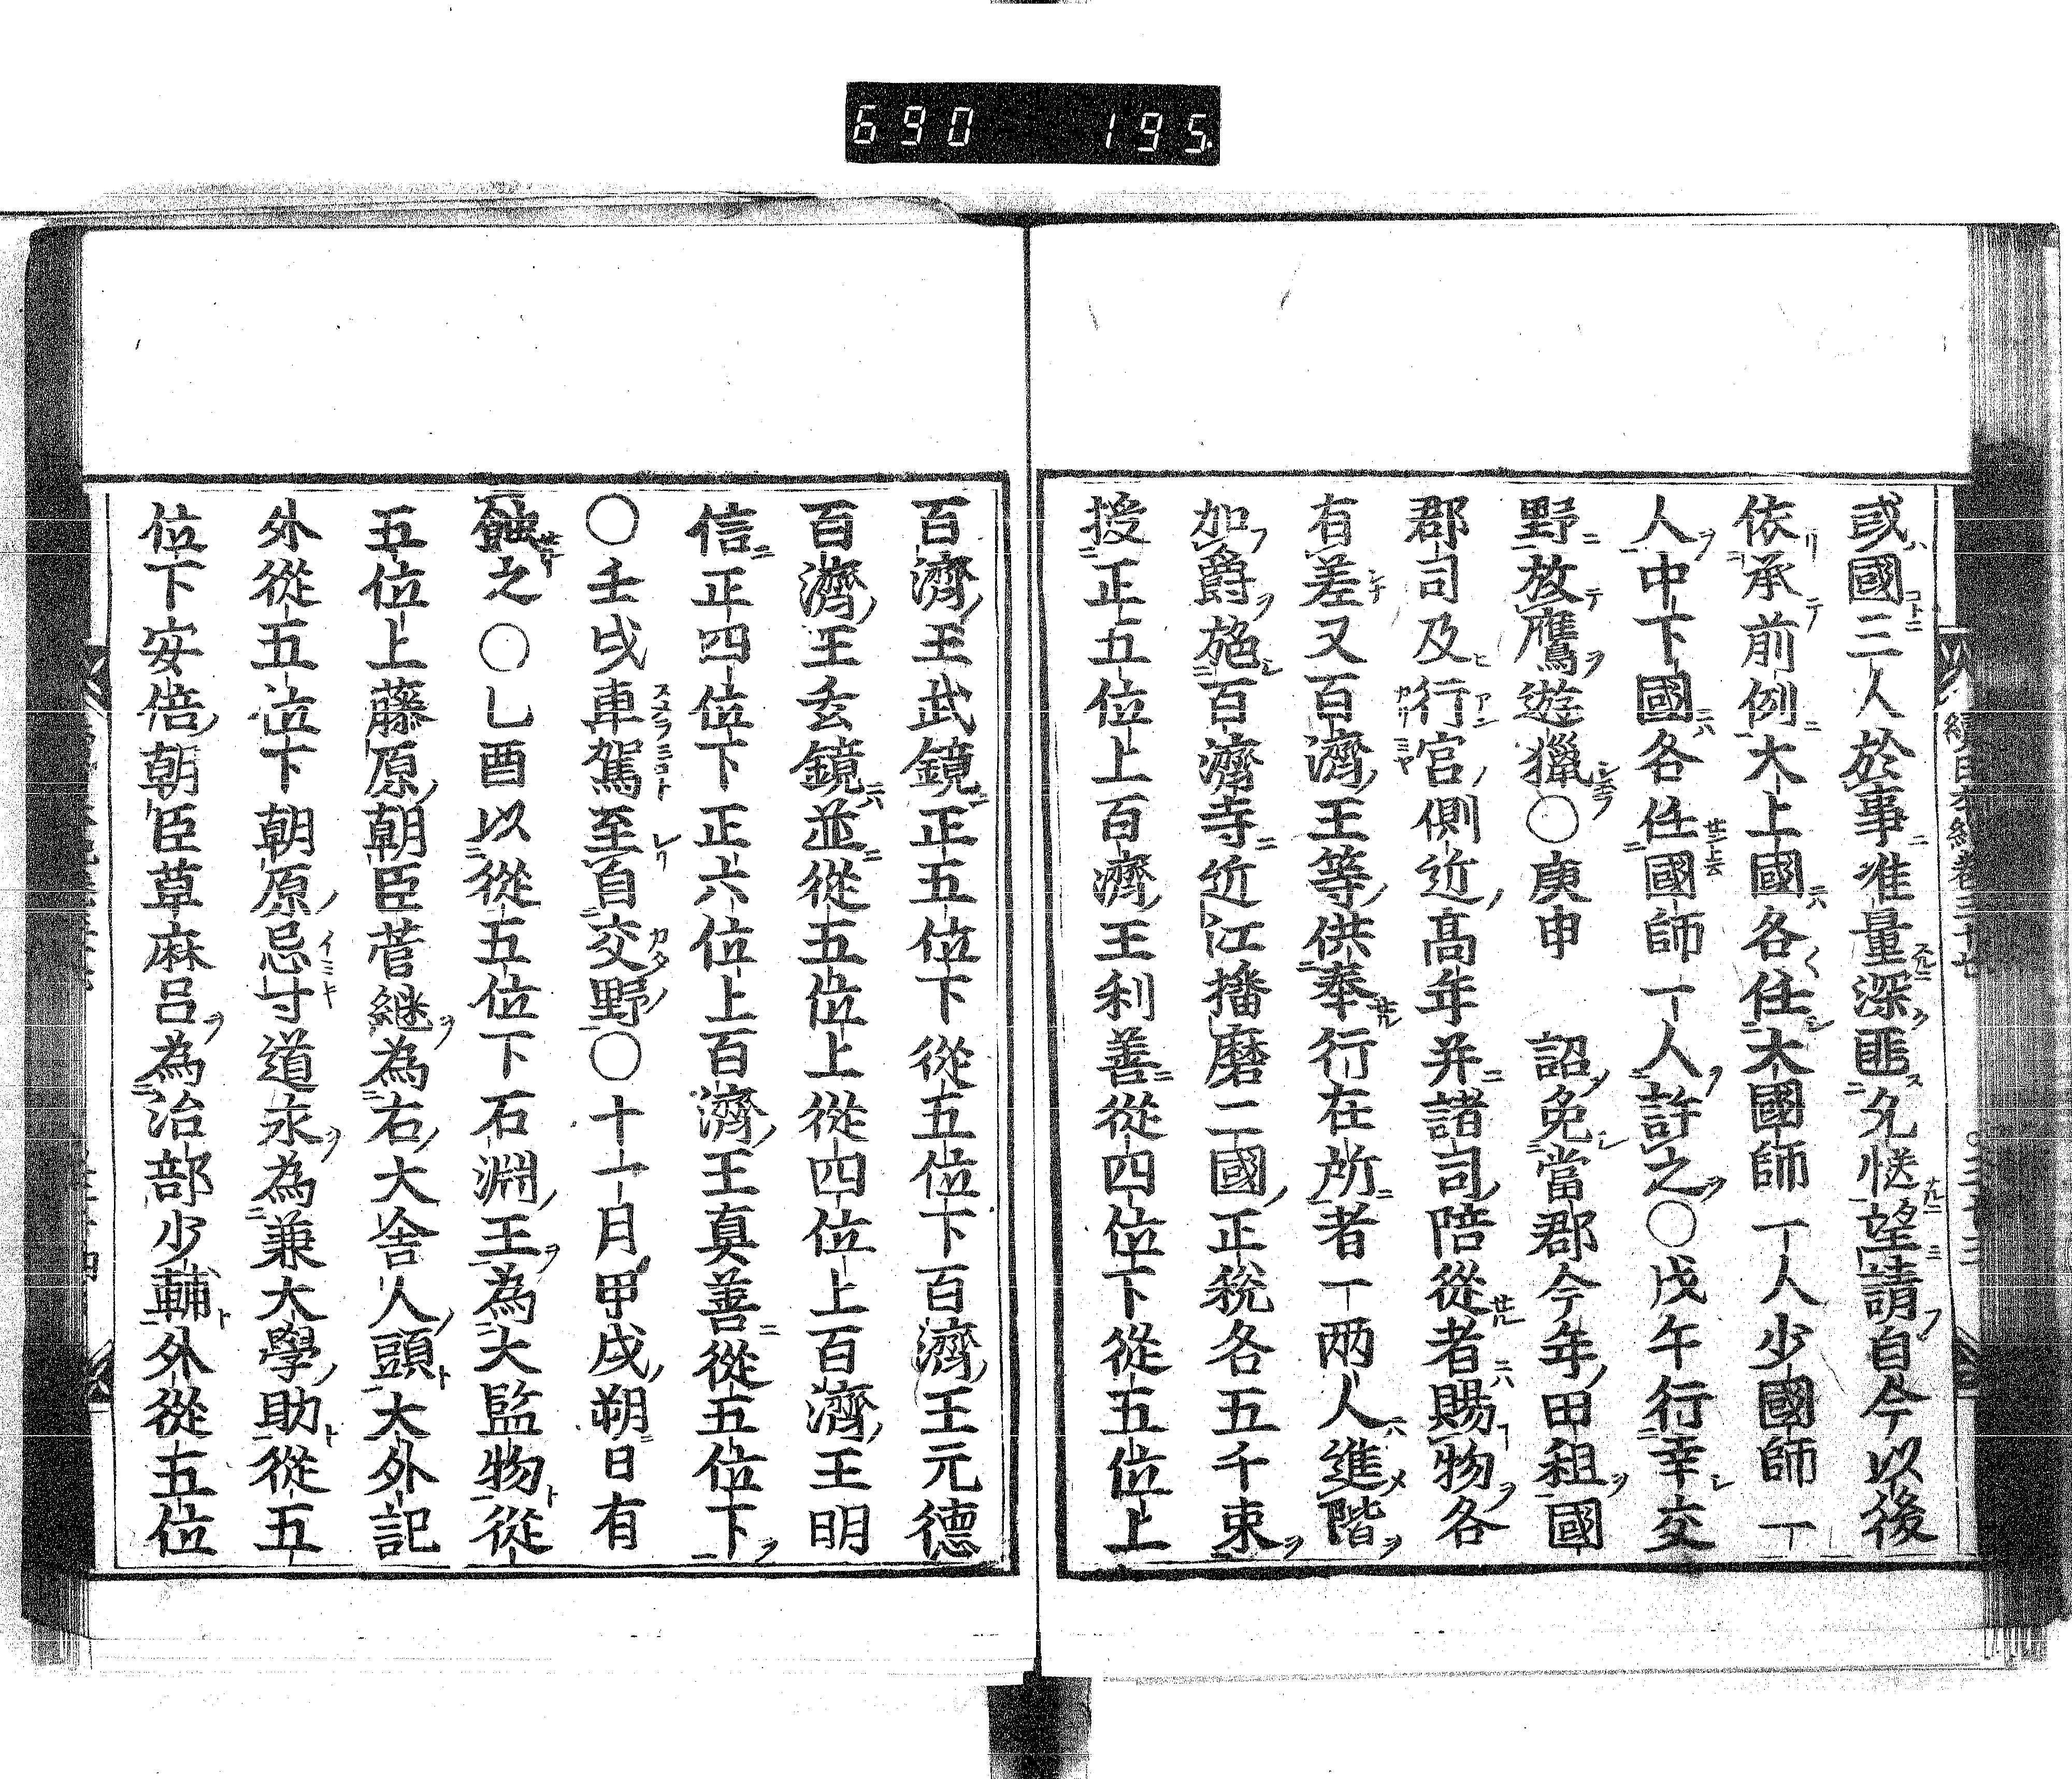 690 195
或國三人於事准量深匪允愜望請自今以後
依承前例大上國各任大國師一人少國師一
人中下國各任國師一人許之○戊午行幸交
野放鷹遊獵○庚申 詔免當郡今年田租國
郡司及行宮側近高年并諸司陪從者賜物各
有差又百濟王等供奉行在所者一兩人進階
加爵施百濟寺近江播磨二國正稅各五千束
授正五位上百濟王利善從四位下從五位上
百濟王武鏡正五位下從五位下百濟王元德
百濟王玄鏡並從五位上從四位上百濟王明
信正四位下正六位上百濟王真善從五位下
○壬戌車駕至自交野○十一月甲戌朔日有
蝕之○乙酉以從五位下石淵王為大監物從
五位上藤原朝臣菅継為右大舍人頭大外記
外從五位下朝原忌寸道永為兼大學助從五
位下安倍朝臣草麻呂為治部少輔外從五位